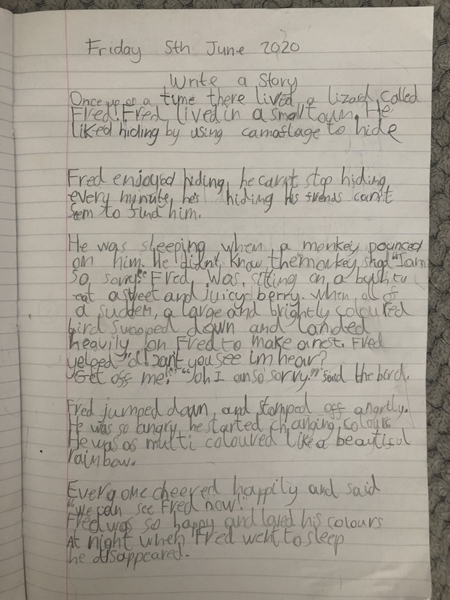 Friday 5th June 2020
Write a Story
Once up on a time there lived a lizard called
Fred! Fred lived in a small town. He
liked hiding by using camoflage to hide
Fred enjoyed hiding, he can't stop hiding
every minute, he's hiding his friends can't
seem to find him.
He was sleeping when a monkey pounced
on him. He didn't know the monkey said "I am
so sorry." Fred was sitting on a bush to
eat a sweet and juicy berry. When all of
a sudden, a large and brightly coloured
bird swooped down and landed
heavily on Fred to make a rest. Fred
yelped "a! Don't you see im hear?
"Get off me!" "Oh I am so sorry!" said the bird.
Fred jumped down, and stomped off angrily.
He was so angry, he started changing colours
He was as multi coloured like a beautiful
rainbow.
Every one cheered happily and said
"we can see Fred now!"
Fred was so happy and loved his colours
At night when Fred went to sleep
he disappeared.